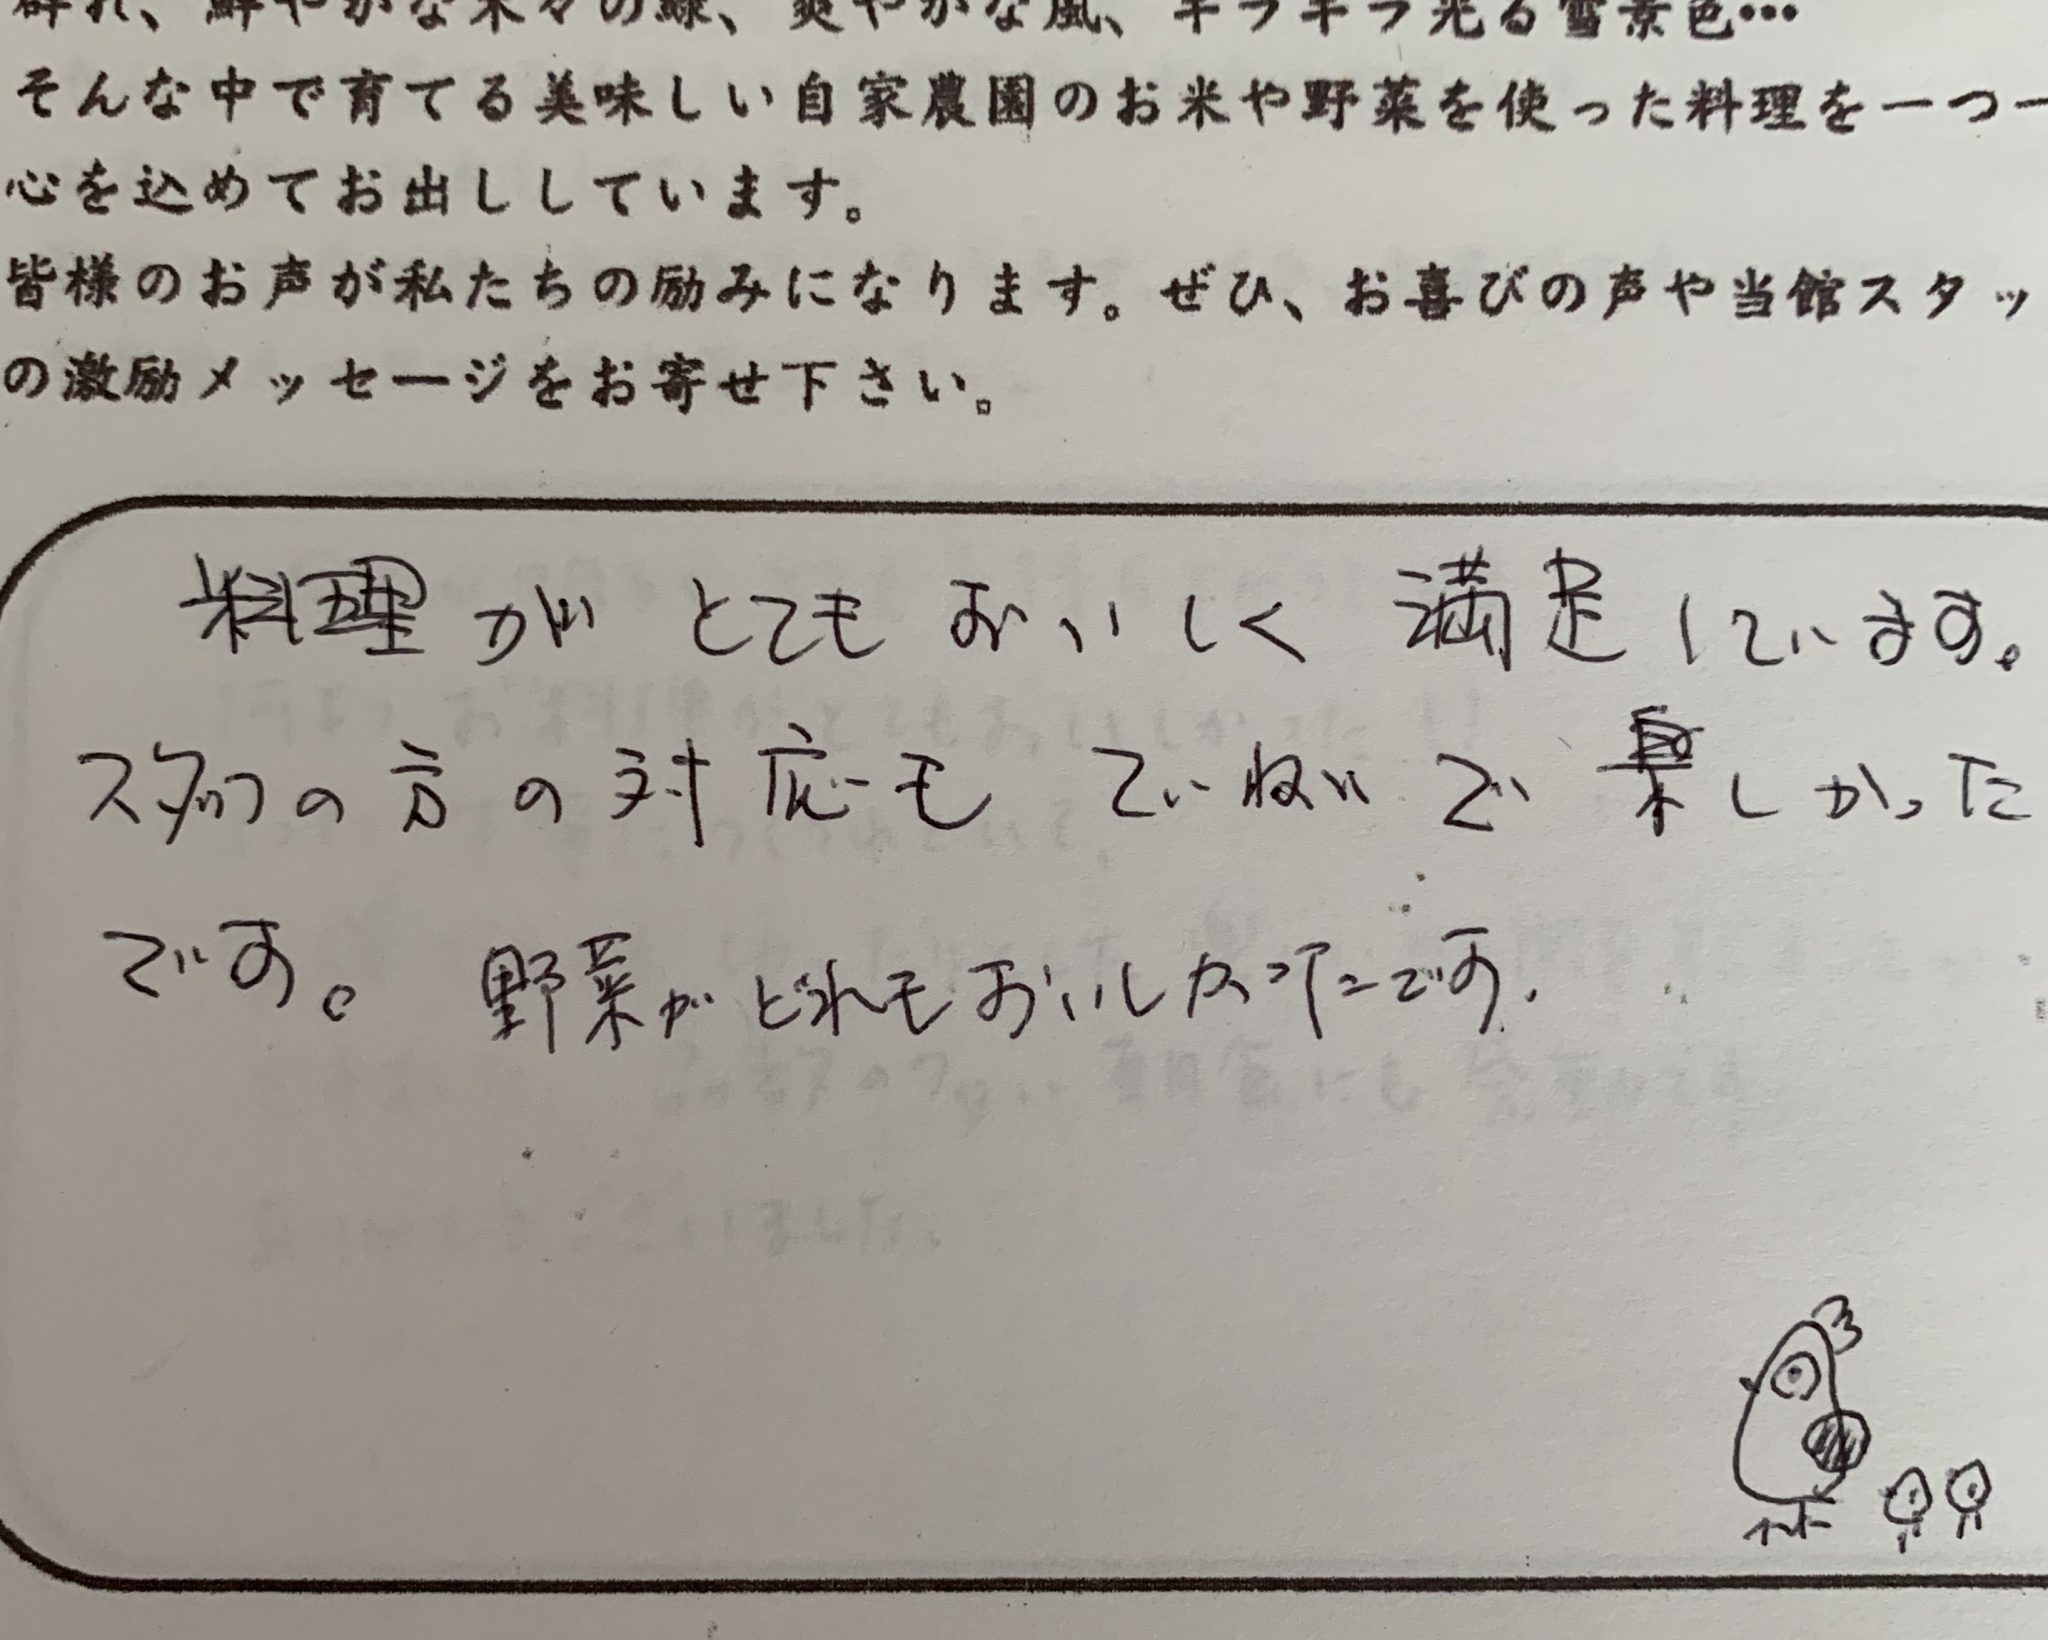 群れ、鮮やかな木々の緑、爽やかな風、キラキラ光る雪景色…
そんな中で育てる美味しい自家農園のお米や野菜を使った料理を一つ一
心を込めてお出ししています。
皆様のお声が私たちの励みになります。ぜひ、お喜びの声や当館スタッ
の激励メッセージをお寄せ下さい。
料理が とても おいしく 満足しています。
スタッフの方の対応も ていねいで 楽しかった
です。 野菜がどれもおいしかったです.